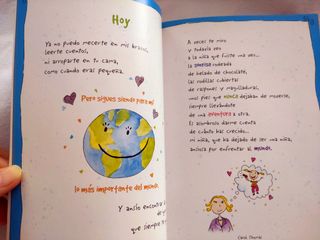 Hoy
Ya no puedo mecerte en mis brazos,
leerte cuentos,
ni arroparte en tu cama,
como cuando eras pequeña.
Pero sigues siendo para mí
lo más importante del mundo.
Y ansío encontrar
de
que siempre
A veces te miro
y todavía veo
a la niña que fuiste una vez...
la sonrisa rodeada
de helado de chocolate,
las rodillas cubiertas
de raspones y magulladuras,
unos pies que nunca dejaban de moverse,
siempre llevándote
de una aventura a otra.
Es asombroso darme cuenta
de cuánto has crecido...
mi niña, que ha dejado de ser una niña,
ansiosa por enfrentar al mundo.
Carol Thomas